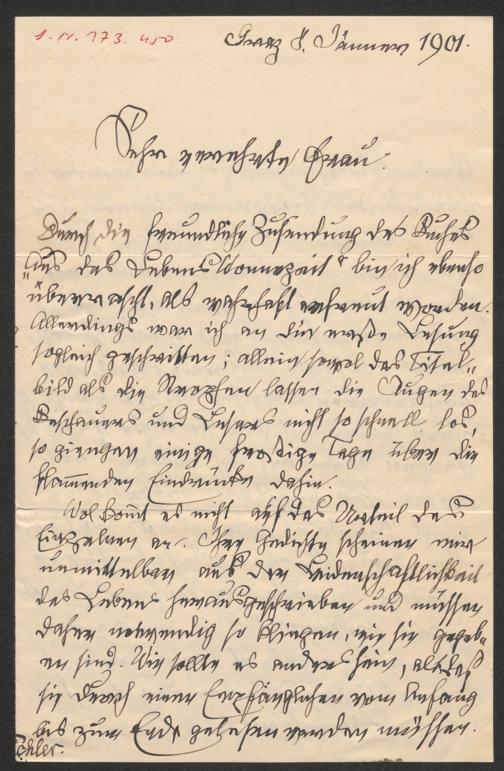 I.N. 173.450
Graz 8. Jänner 1901.
Sehr verehrte Frau
Durch die freundliche Zusendung des Buches
„Aus des Lebens Wonnezeit“ bin ich ebenso
überrascht, als wahrhaft erfreut worden.
Allerdings war ich an die erste Lesung
sogleich geschritten; allein sowol das Titel„
bild als die Strophen lassen die Augen des
Beschauers und Lesers nicht so schnell los,
so giengen einige frostige Tage über die
flammenden Eindrücke dahin.
Wol kommt es nicht auf das Urteil des
Einzelnen an. Ihre Gedichte scheinen mir
unmittelbar aus der Leidenschaftlichkeit
des Lebens herausgeschrieben und müssen
daher notwendig so klingen, wie sie gegeb„
en sind. Wie sollte es anders sein, als daß
sie durch einen Empfänglichen vom Anfang
bis zum Ende gelesen werden müssen.